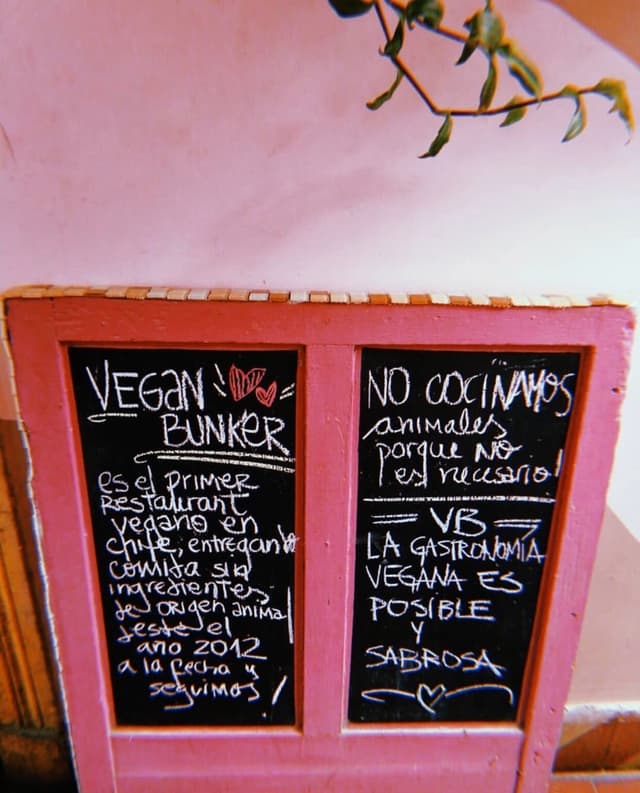 VEGAN
BUNKER
es el primer
Restaurant
vegano en
chile, entregando
comida sin
ingredientes
de origen animal
desde el
año 2012
a la fecha y
seguimos!
NO COCINAMOS
animales
porque NO
es necesario!
VB
LA GASTRONOMÍA
VEGANA ES
POSIBLE
Y
SABROSA